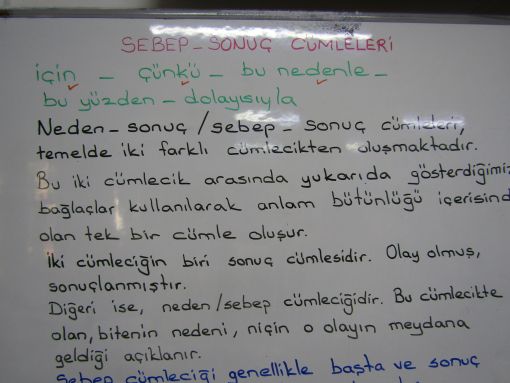 SEBEP-SONUÇ CÜMLELERİ
için - çünkü - bu nedenle -
bu yüzden - dolayısıyla
Neden-sonuç/sebep-sonuç cümleleri,
temelde iki farklı cümlecikten oluşmaktadır.
Bu iki cümlecik arasında yukarıda gösterdiğimiz
bağlaçlar kullanılarak anlam bütünlüğü içerisind
olan tek bir cümle oluşur.
İki cümleciğin biri sonuç cümlesidir. Olay olmuş,
sonuçlanmıştır.
Diğeri ise, neden/sebep cümleciğidir. Bu cümlecikte
olan, bitenin nedeni, niçin o olayın meydana
geldiği açıklanır.
Sebep cümleciği genellikle başta ve sonuç